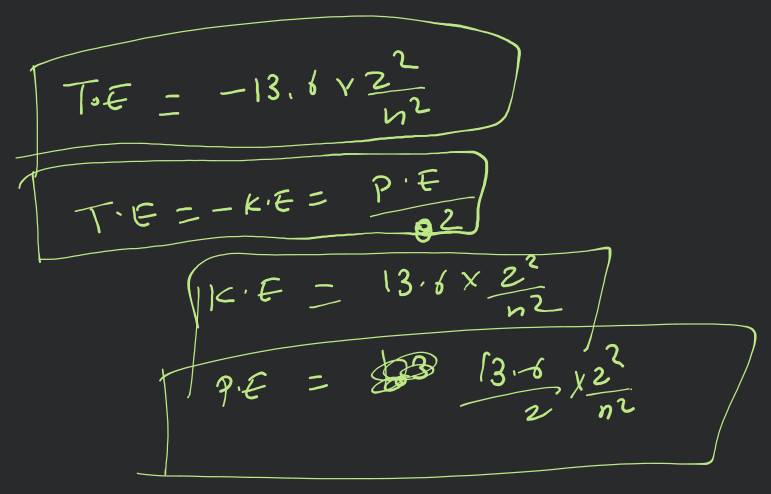 T.E = -13.6 × z²/n²
T.E = -K.E = P.E/2
K.E = 13.6 × z²/n²
P.E = 13.6/2 × z²/n²